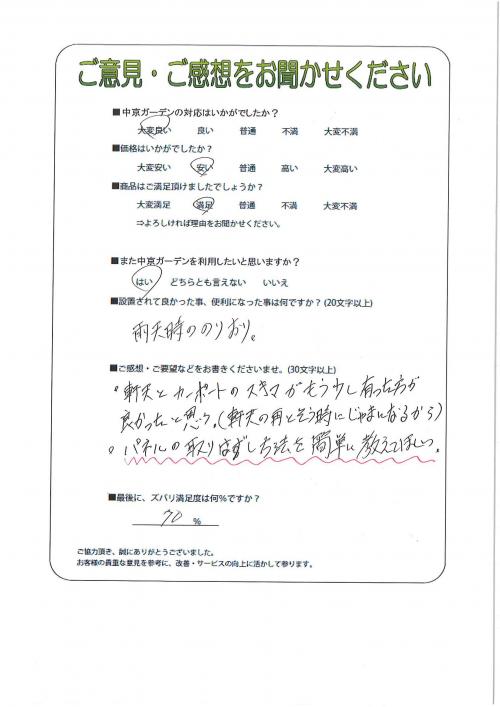 ご意見・ご感想をお聞かせください
■中京ガーデンの対応はいかがでしたか？
大変良い 良い 普通 不満 大変不満
■価格はいかがでしたか？
大変安い 安い 普通 高い 大変高い
■商品はご満足頂けましたでしょうか？
大変満足 満足 普通 不満 大変不満
⇒よろしければ理由をお聞かせください。
■また中京ガーデンを利用したいと思いますか？
はい どちらとも言えない いいえ
■設置されて良かった事、便利になった事は何ですか？(20文字以上)
雨天時ののりおり。
■ご感想・ご要望などをお書きくださいませ。(30文字以上)
・軒天とカーポートのスキマがもう少し有った方が
良かったと思う。(軒天の再とそう時にじゃまになるから)
・パネルの取りはずし方法を簡単に教えてほしい。
■最後に、ズバリ満足度は何%ですか？
70 %
ご協力頂き、誠にありがとうございました。
お客様の貴重な意見を参考に、改善・サービスの向上に活かして参ります。